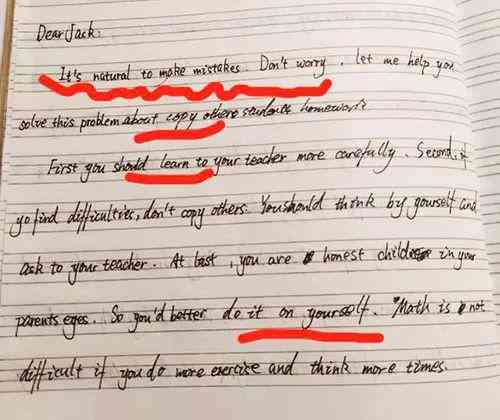 Dear Jack:
It's natural to make mistakes. Don't worry. let me help you
solve this problem about copy others students homework.
First you should learn to your teacher more carefully. Second, if
yo find difficulties, don't copy others. You should think by yourself and
ask to your teacher. At last, you are honest child in your
parents eyes. So you'd better do it on yourself. "Math is not
difficult if you do more exercise and think more times.